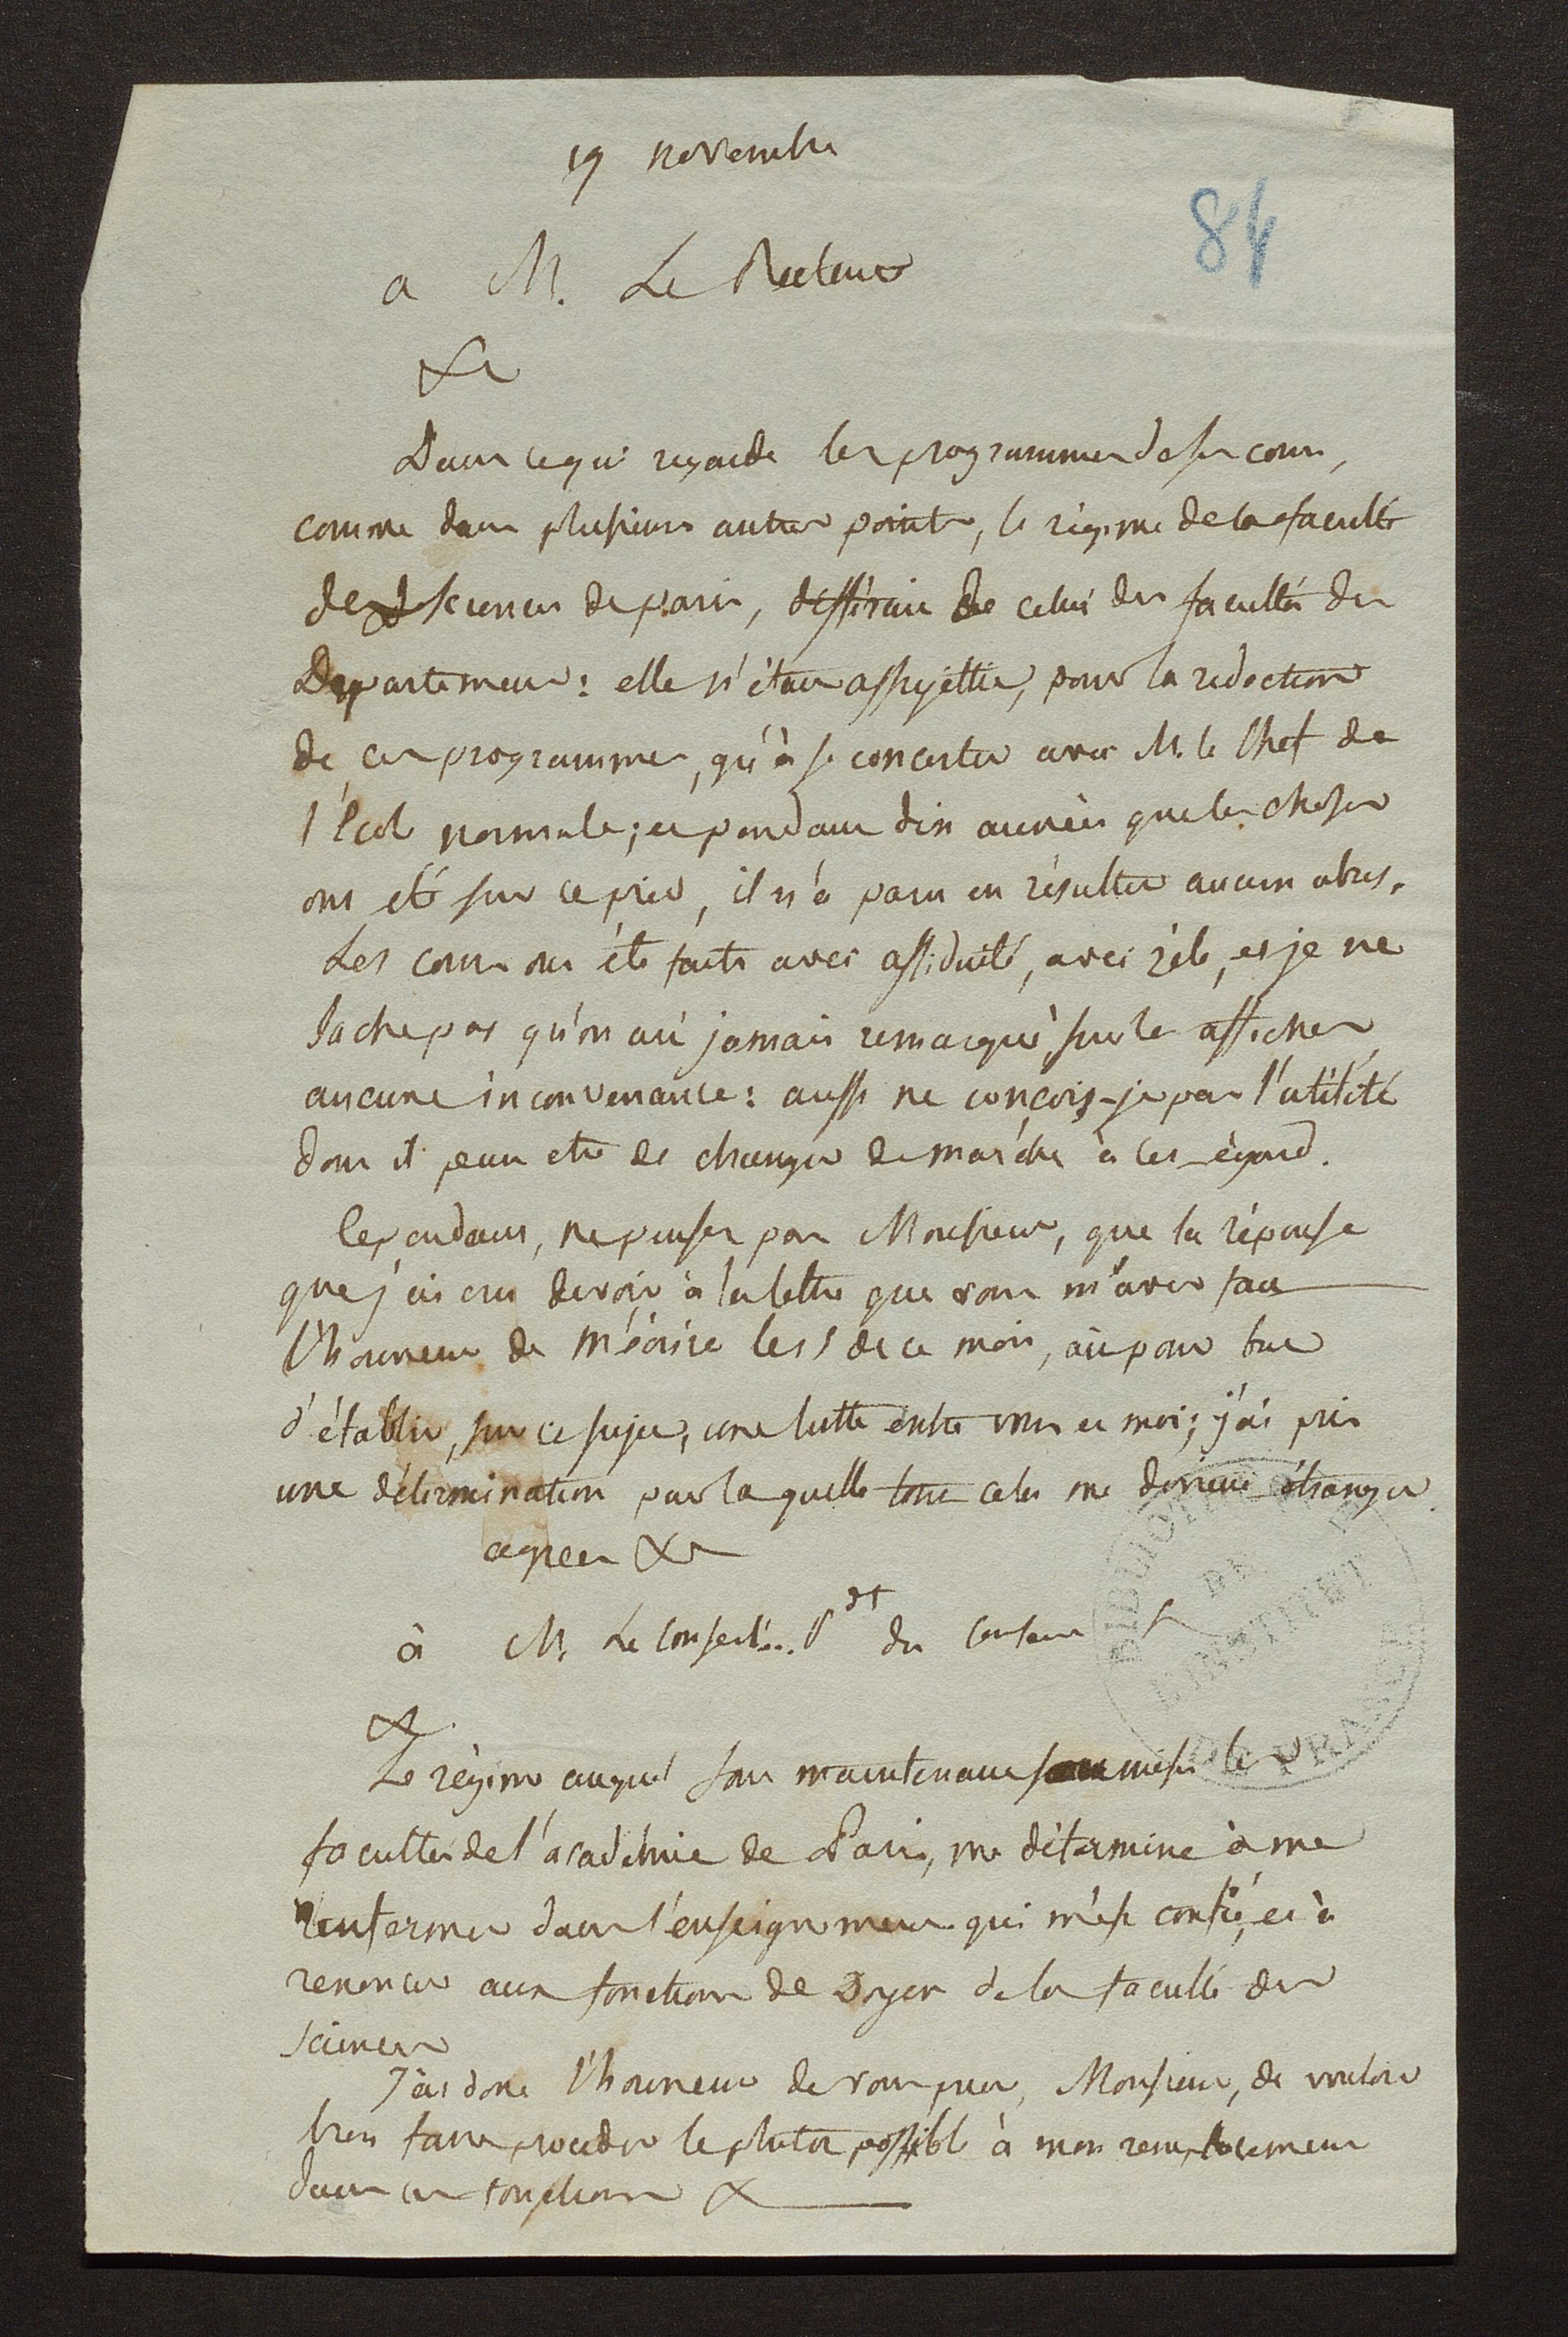 19 novembre
84
a M. Le Recteur
&c
Dans ce qui regarde les programmes de ses cours,
comme dans plusieurs autres points, le régime de la faculté
des sciences de paris, différait de celui des facultés des
Departemens : elle n'était assujettie, pour la redaction
de ces programmes, qu'à se concerter avec M. le Chef de
l'École normale ; et pendant dix années que les choses
ont été sur ce pied, il n'a paru en résulter aucun abus.
Les cours ont été faits avec assiduité, avec zèle, et je ne
sache pas qu'on ait jamais remarqué, sur les affiches
aucune inconvenance : aussi ne conçois-je pas l'utilité
dont il peut etre de changer de marche à cet égard.
Cependant, ne pensez pas Monsieur, que la réponse
que j'ai cru devoir à la lettre que vous m'avez fait
l'honneur de m'écrire le 15 de ce mois, ait pour but
d'établir, sur ce sujet, une lutte entre vous et moi ; j'ai pris
une détermination par laquelle tout cela me devient étranger
agreez &c
à M. Le Conseil... Pdt du
&c.
Le régime auquel sont maintenant soumises les
facultés de l'académie de Paris, me détermine à me
renfermer dans l'enseignement qui m'est confié, et à
renoncer aux fonctions de Doyen de la faculté des
sciences
J'ai donc l'honneur de vous prier, Monsieur, de vouloir
bien faire procéder le plutot possible à mon remplacement
dans ces fonctions &
BIBLIOTHEQUE
DE
L'INSTITUT
DE FRANCE